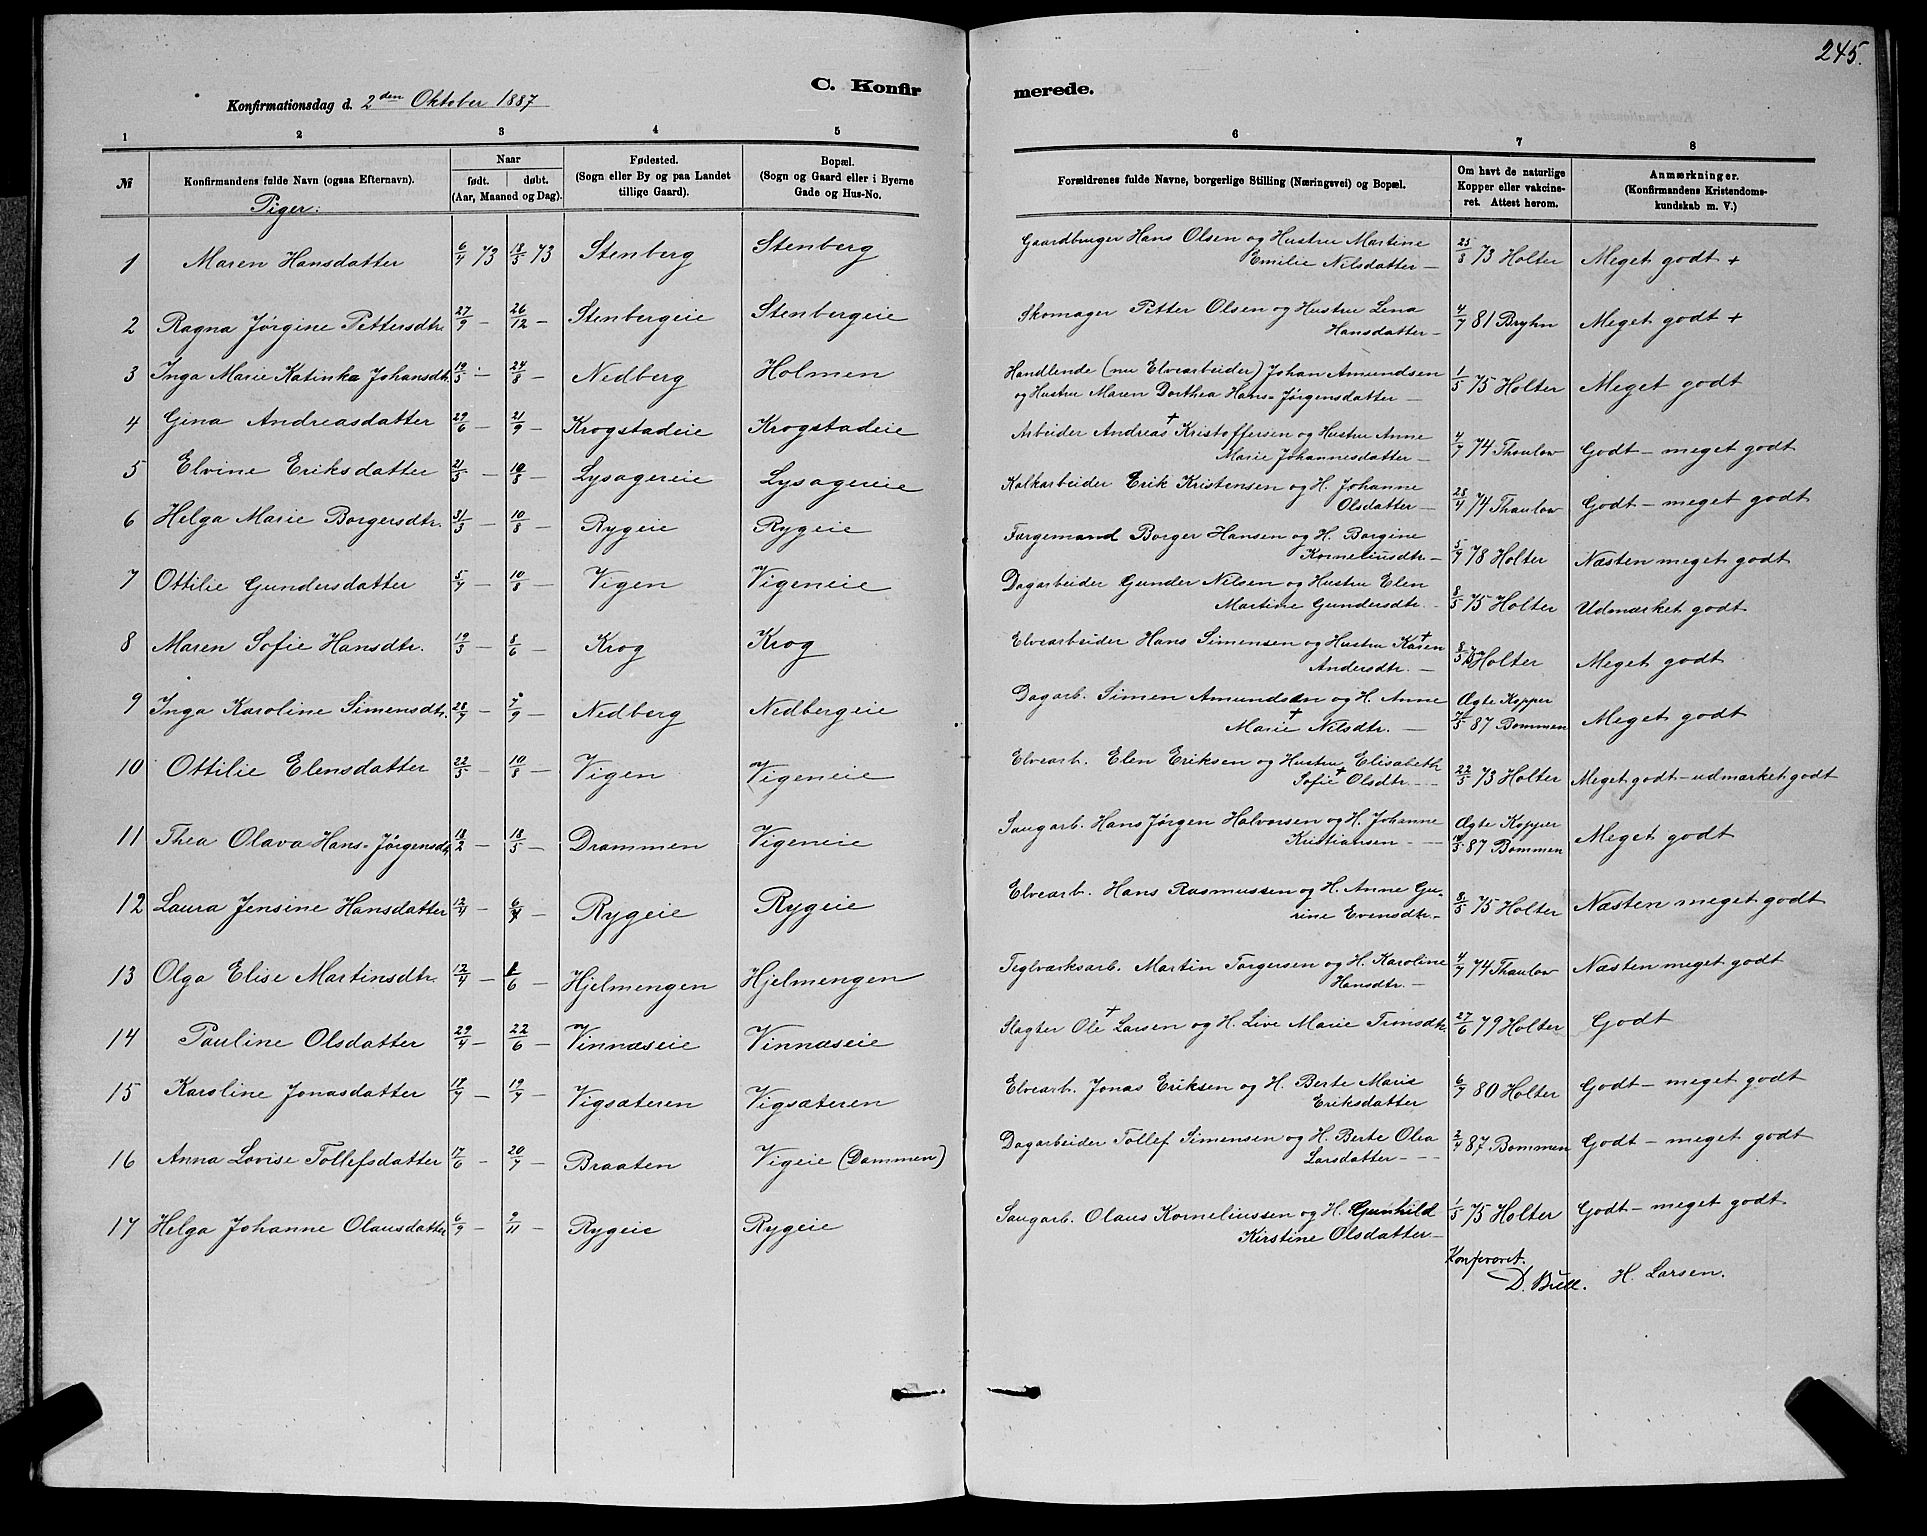 245.
C. Konfirmerede.
Konfirmationsdag d. 2den Oktober 1887
1 2 3 4 5 6 7 8
№ Konfirmandens fulde Navn (ogsaa Efternavn). Naar født. døbt. (Aar, Maaned og Dag). Fødested. (Sogn eller By og paa Landet tillige Gaard). Bopæl. (Sogn og Gaard eller i Byerne Gade og Hus-No. Forældrenes fulde Navne, borgerlige Stilling (Næringsvei) og Bopæl. Om havt de naturlige Kopper eller vakcineret. Attest herom. Anmærkninger. (Konfirmandens Kristendomskundskab m. V.)
Piger:
1 Maren Hansdatter 6/4 73 18/5 73 Stenberg Stenberg Gaardbruger Hans Olsen og Hustru Martine Emilie Nilsdatter — 25/8 73 Holter Meget godt +
2 Ragna Jørgine Pettersdtr. 27/9 — 26/12 — Stenbergeie Stenbergeie Skomager Petter Olsen og Hustru Lena Hansdatter — 4/7 81 Bryhn Meget godt +
3 Inga Marie Katinka Johansdt. 19/5 — 24/8 — Nedberg Holmen Handlende (nu Elvearbeider) Johan Amundsen og Hustru Maren Dorthea Hans-Jørgensdatter — 1/5 75 Holter Meget godt
4 Gina Andreasdatter 29/6 — 21/9 — Krogstadeie Krogstadeie Arbeider Andreas † Kristoffersen og Hustru Anne Marie Johannesdatter — 4/7 74 Thaulow Godt — meget godt
5 Elvine Eriksdatter 21/5 — 10/8 — Lysagereie Lysagereie Kalkarbeider Erik Kristensen og H. Johanne Olsdatter — 28/4 74 Thaulow Godt — meget godt
6 Helga Marie Borgersdtr. 31/3 — 10/8 — Rygeie Rygeie Færgemand Borger Hansen og H. Borgine Korneliusdtr — 5/7 78 Holter Næsten meget godt
7 Ottilie Gundersdatter 5/7 — 10/8 — Vigen Vigeneie Dagarbeider Gunder Nilsen og Hustru Elen Martine Gundersdtr. — 8/5 75 Holter Udmærket godt
8 Maren Sofie Hansdtr. 19/3 — 8/6 — Krog Krog Elvearbeider Hans Simensen og Hustru Karen † Andersdtr. — 8/5 Holter Meget godt
9 Inga Karoline Simensdtr. 28/7 — 7/9 — Nedberg Nedbergeie Dagarb. Simen Amundsen og H. Anne Marie † Nilsdtr. — Ægte Kopper 87 Bommen Meget godt
10 Ottilie Elensdatter 22/5 — 10/8 — Vigen Vigeneie Elvearb. Elen Eriksen og Hustru Elisabeth Sofie † Olsdtr. — 22/5 73 Holter Meget godt — udmærket godt
11 Thea Olava Hans-Jørgensdt. 18/2 — 18/5 — Drammen Vigeneie Saugarb. Hans Jørgen Halvorsen og H. Johanne Kristiansen — Ægte Kopper 87 Bommen Meget godt
12 Laura Jensine Hansdatter 12/4 — 6/7 — Rygeie Rygeie Elvearb. Hans Rasmussen og H. Anne Gurine Evensdtr. — 8/5 75 Holter Næsten meget godt
13 Olga Elise Martinsdtr. 12/4 — 1/6 — Hjelmengen Hjelmengen Teglværksarb. Martin Torgersen og H. Karoline Hansdtr. — 4/7 74 Thaulow Næsten meget godt
14 Pauline Olsdatter 29/4 — 22/6 — Vinnæseie Vinnæseie Slagter Ole † Larsen og H. Live Marie Timsdtr. 27/6 79 Holter Godt
15 Karoline Jonasdatter 18/7 — 19/7 — Vigsæteren Vigsæteren Elvearb. Jonas Eriksen og H. Berte Marie Eriksdatter 6/7 80 Holter Godt — meget godt
16 Anna Lovise Tollefsdatter 17/6 — 20/7 — Braaten Vigeie (Dammen) Dagarbeider Tollef Simensen og H. Berte Olea Larsdatter — 2/4 87 Bommen Godt — meget godt
17 Helga Johanne Olausdatter 6/9 — 9/11 — Rygeie Rygeie Saugarb. Olaus Korneliussen og H. Gunhild Kirstine Olsdatter — 1/5 75 Holter Godt — meget godt
Konfereret.
D. Bull. H. Larsen.